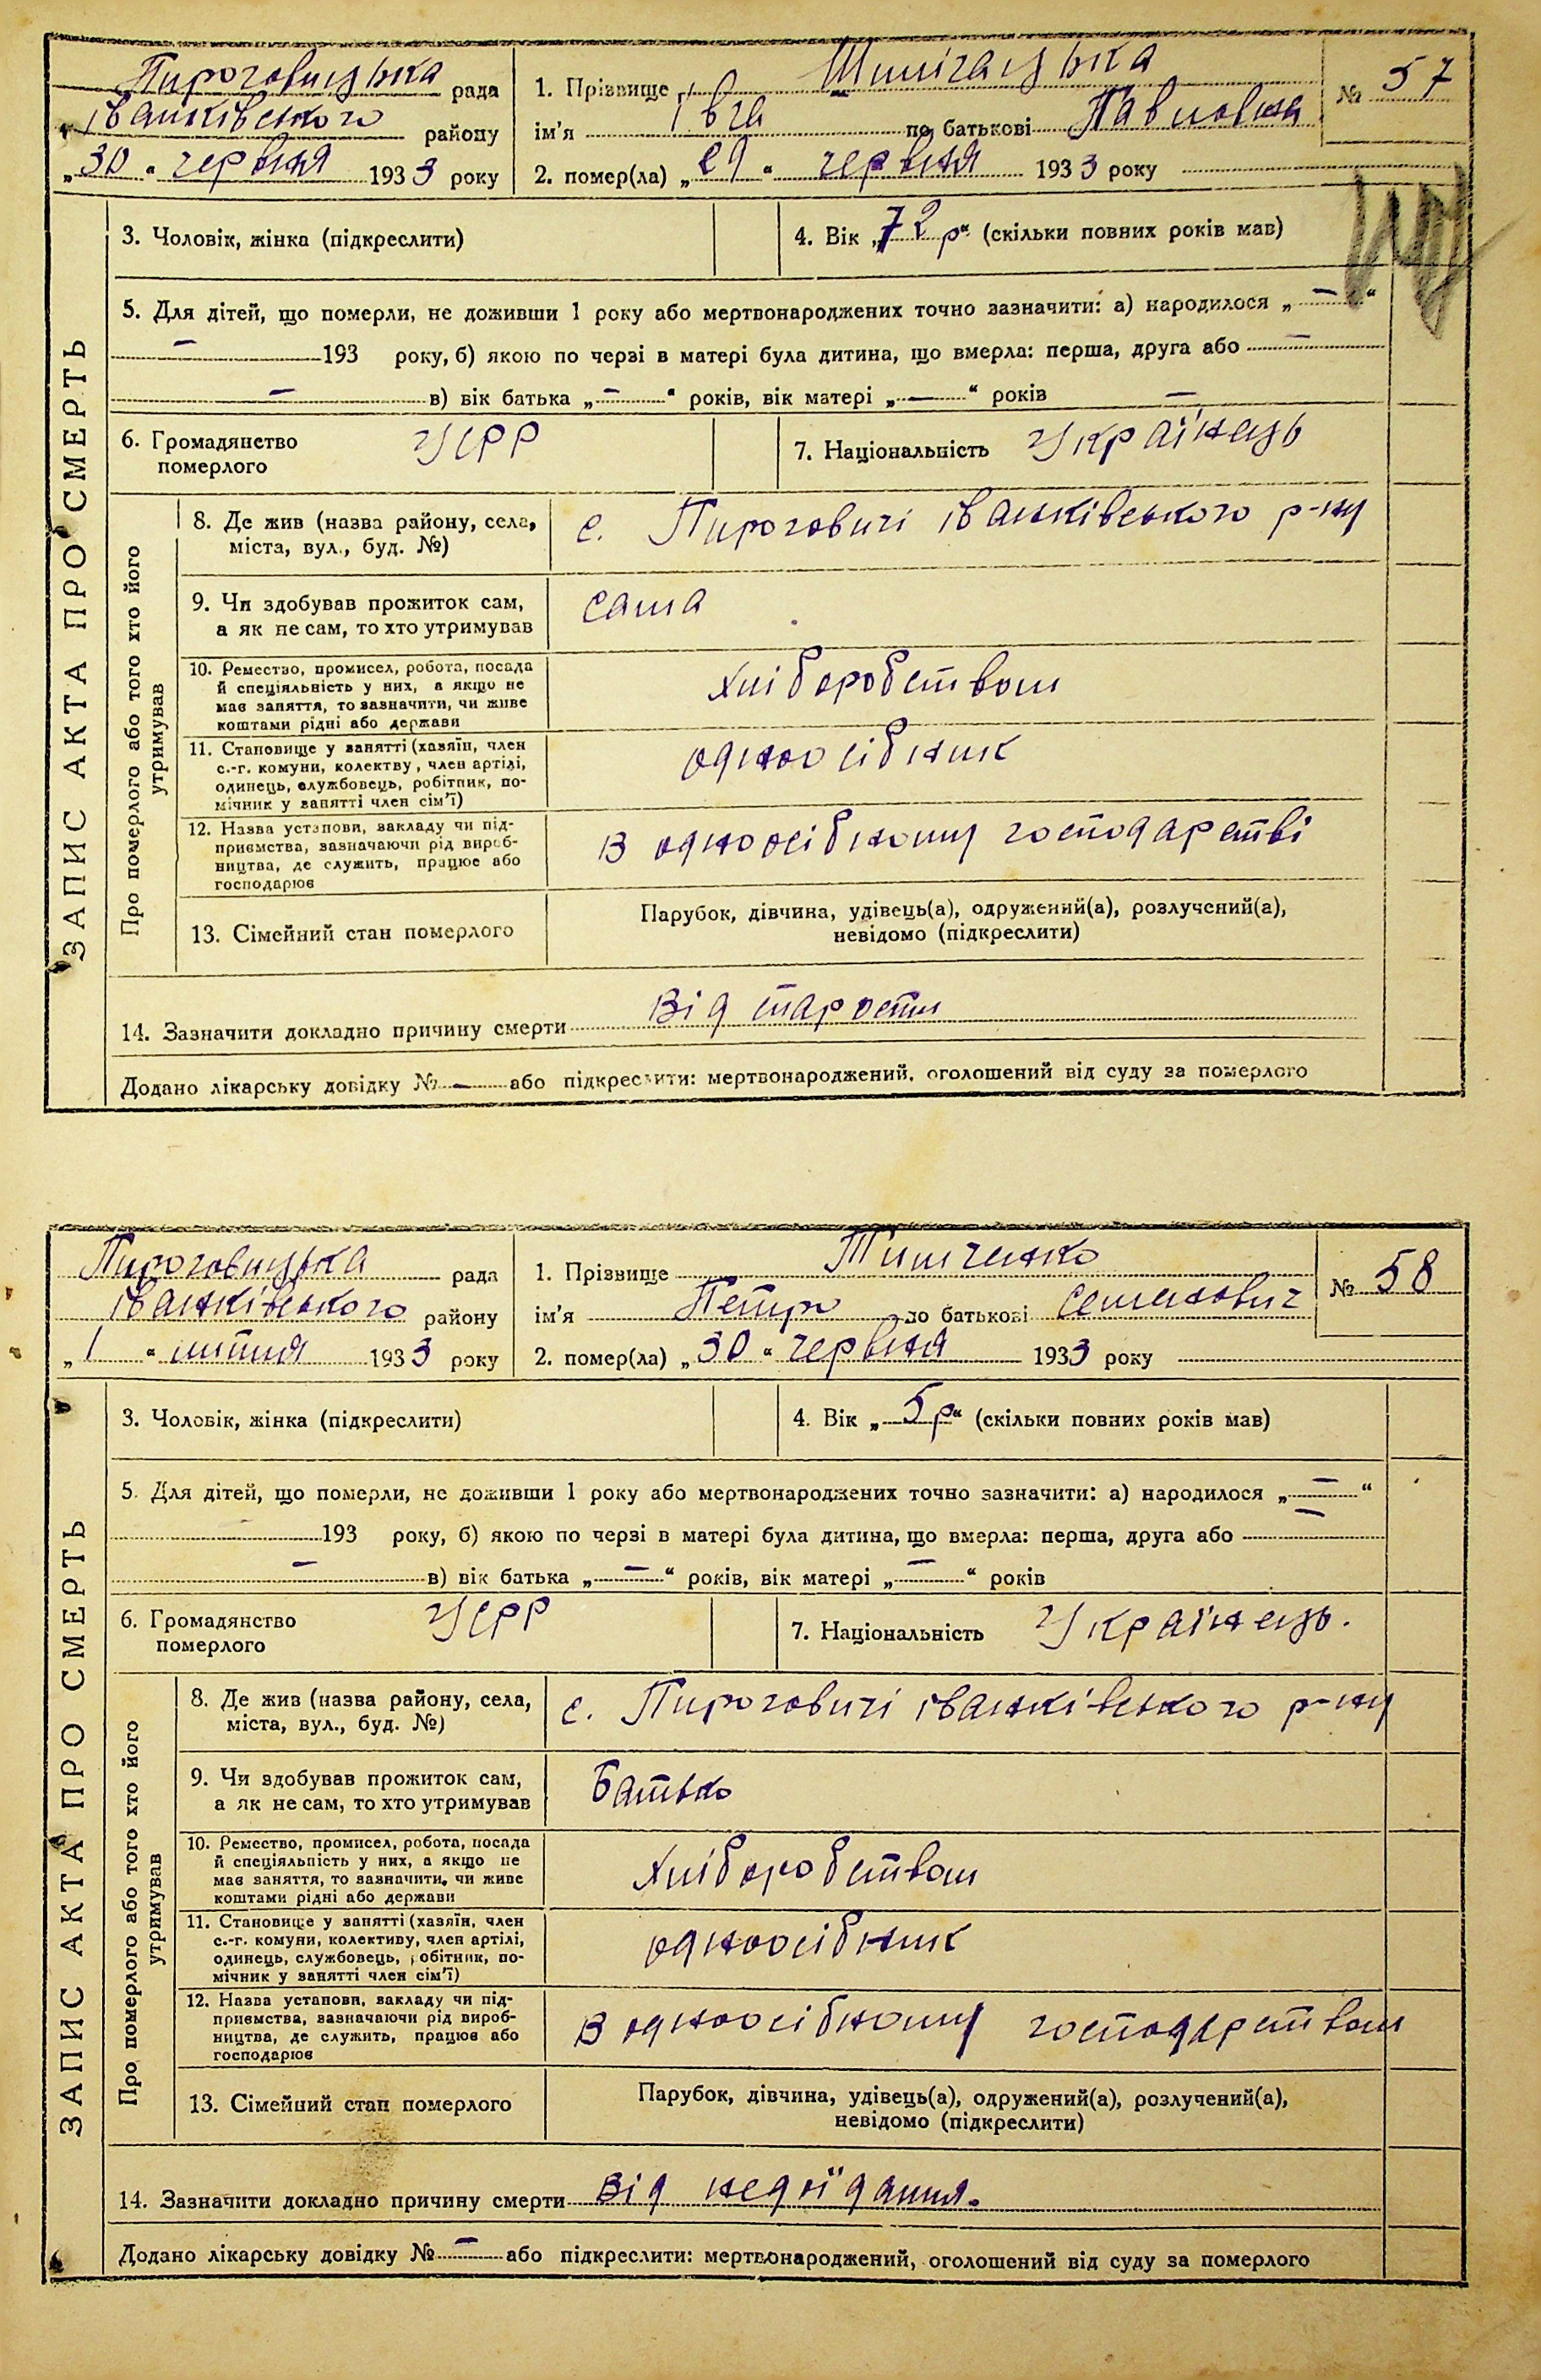 ЗАПИС АКТА ПРО СМЕРТЬ
Пироговицька рада
Іванківського району
„30" червня 1933 року
1. Прізвище
ім'я Івга по батькові Павловна
2. помер(ла) „29" червня 1933 року
№ 57
3. Чоловік, жінка (підкреслити)
4. Вік „72 р" (скільки повних років мав)
5. Для дітей, що померли, не доживши 1 року або мертвонароджених точно зазначити: а) народилося „—"
— 193 року, б) якою по черзі в матері була дитина, що вмерла: перша, друга або —
— в) вік батька „—" років, вік матері „—" років —
6. Громадянство
померлого
УСРР
7. Національність Українець
Про померлого або того хто його
утримував
8. Де жив (назва району, села,
міста, вул., буд. №)
с. Пироговичі Іванківського р-ну
9. Чи здобував прожиток сам,
а як не сам, то хто утримував
сама
10. Ремество, промисел, робота, посада
й спеціяльність у них, а якщо не
має заняття, то зазначити, чи живе
коштами рідні або держави
хліборобством
11. Становище у занятті (хазяїн, член
с.-г. комуни, колектву, член артілі,
одинець, службовець, робітник, по-
мічник у занятті член сім'ї)
одноосібник
12. Назва установи, закладу чи під-
приємства, зазначаючи рід вироб-
ництва, де служить, працює або
господарює
в одноосібному господарстві
13. Сімейний стан померлого
Парубок, дівчина, удівець(а), одружений(а), розлучений(а),
невідомо (підкреслити)
14. Зазначити докладно причину смерти від старости
Додано лікарську довідку № — або підкреслити: мертвонароджений, оголошений від суду за померлого
ЗАПИС АКТА ПРО СМЕРТЬ
Пироговицька рада
Іванківського району
„1" липня 1933 року
1. Прізвище Тимченко
ім'я Петро по батькові Семенович
2. помер(ла) „30" червня 1933 року
№ 58
3. Чоловік, жінка (підкреслити)
4. Вік „5 р" (скільки повних років мав)
5. Для дітей, що померли, не доживши 1 року або мертвонароджених точно зазначити: а) народилося „—"
193 року, б) якою по черзі в матері була дитина, що вмерла: перша, друга або —
— в) вік батька „—" років, вік матері „—" років
6. Громадянство
померлого
УСРР
7. Національність Українець.
Про померлого або того хто його
утримував
8. Де жив (назва району, села,
міста, вул., буд. №)
с. Пироговичі Іванківського р-ну
9. Чи здобував прожиток сам,
а як не сам, то хто утримував
Батько
10. Ремество, промисел, робота, посада
й спеціяльність у них, а якщо не
має заняття, то зазначити, чи живе
коштами рідні або держави
хліборобством
11. Становище у занятті (хазяїн, член
с.-г. комуни, колективу, член артілі,
одинець, службовець, робітник, по-
мічник у занятті член сім'ї)
одноосібник
12. Назва установи, закладу чи під-
приємства, зазначаючи рід вироб-
ництва, де служить, працює або
господарює
в одноосібному господарством
13. Сімейний стан померлого
Парубок, дівчина, удівець(а), одружений(а), розлучений(а),
невідомо (підкреслити)
14. Зазначити докладно причину смерти від недоїдання.
Додано лікарську довідку № — або підкреслити: мертвонароджений, оголошений від суду за померлого